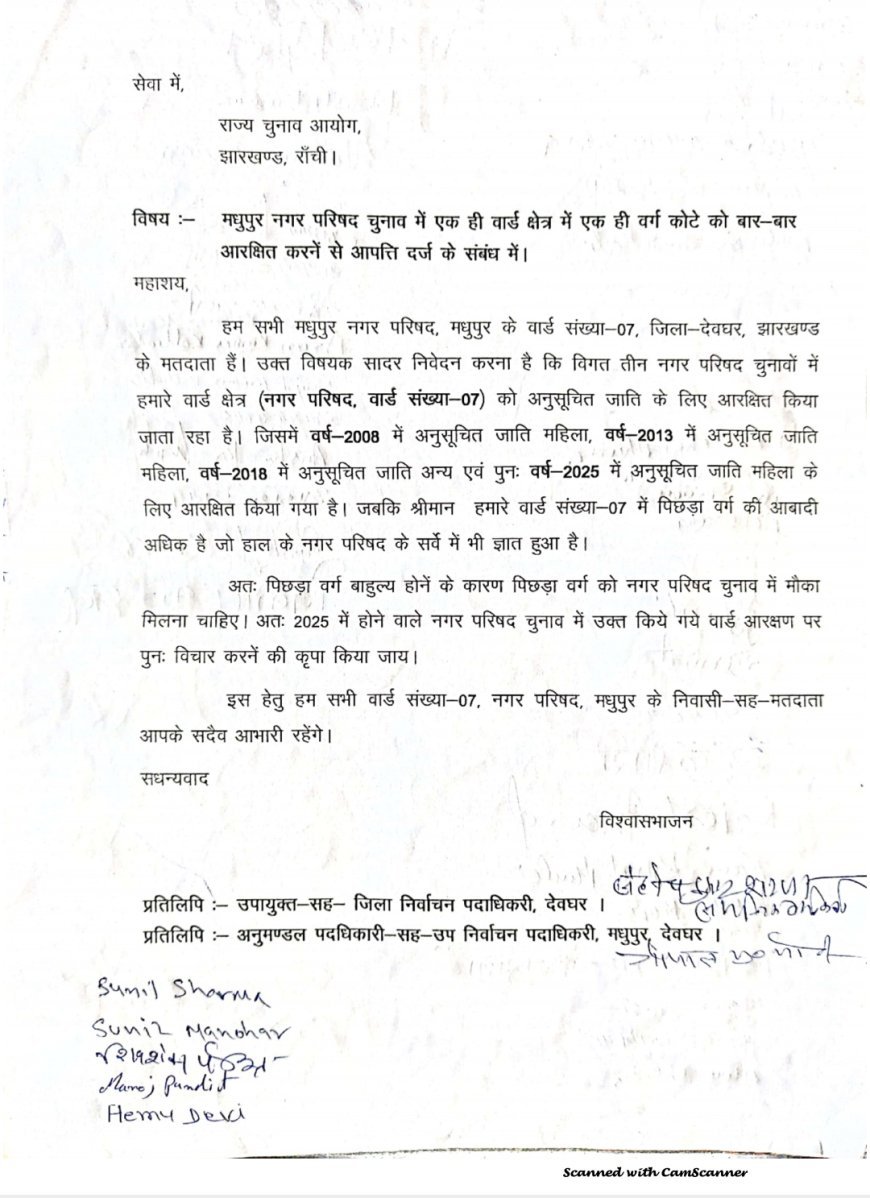 सेवा में,
राज्य चुनाव आयोग,
झारखण्ड, राँची।
विषय :– मधुपुर नगर परिषद चुनाव में एक ही वार्ड क्षेत्र में एक ही वर्ग कोटे को बार–बार
आरक्षित करनें से आपत्ति दर्ज के संबंध में।
महाशय,
हम सभी मधुपुर नगर परिषद, मधुपुर के वार्ड संख्या–07, जिला–देवघर, झारखण्ड
के मतदाता हैं। उक्त विषयक सादर निवेदन करना है कि विगत तीन नगर परिषद चुनावों में
हमारे वार्ड क्षेत्र (नगर परिषद, वार्ड संख्या–07) को अनुसूचित जाति के लिए आरक्षित किया
जाता रहा है। जिसमें वर्ष–2008 में अनुसूचित जाति महिला, वर्ष–2013 में अनुसूचित जाति
महिला, वर्ष–2018 में अनुसूचित जाति अन्य एवं पुनः वर्ष–2025 में अनुसूचित जाति महिला के
लिए आरक्षित किया गया है। जबकि श्रीमान हमारे वार्ड संख्या–07 में पिछड़ा वर्ग की आबादी
अधिक है जो हाल के नगर परिषद के सर्वे में भी ज्ञात हुआ है।
अतः पिछड़ा वर्ग बाहुल्य होनें के कारण पिछड़ा वर्ग को नगर परिषद चुनाव में मौका
मिलना चाहिए। अतः 2025 में होने वाले नगर परिषद चुनाव में उक्त किये गये वार्ड आरक्षण पर
पुनः विचार करनें की कृपा किया जाय।
इस हेतु हम सभी वार्ड संख्या–07, नगर परिषद, मधुपुर के निवासी–सह–मतदाता
आपके सदैव आभारी रहेंगे।
सधन्यवाद
विश्वासभाजन
प्रतिलिपि :– उपायुक्त–सह– जिला निर्वाचन पदाधिकरी, देवघर ।
प्रतिलिपि :– अनुमण्डल पदधिकारी–सह–उप निर्वाचन पदाधिकरी, मधुपुर, देवघर ।
Sunil Sharma
Sunil Manohar
Manoj Pandit
Hemu Devi
Scanned with CamScanner